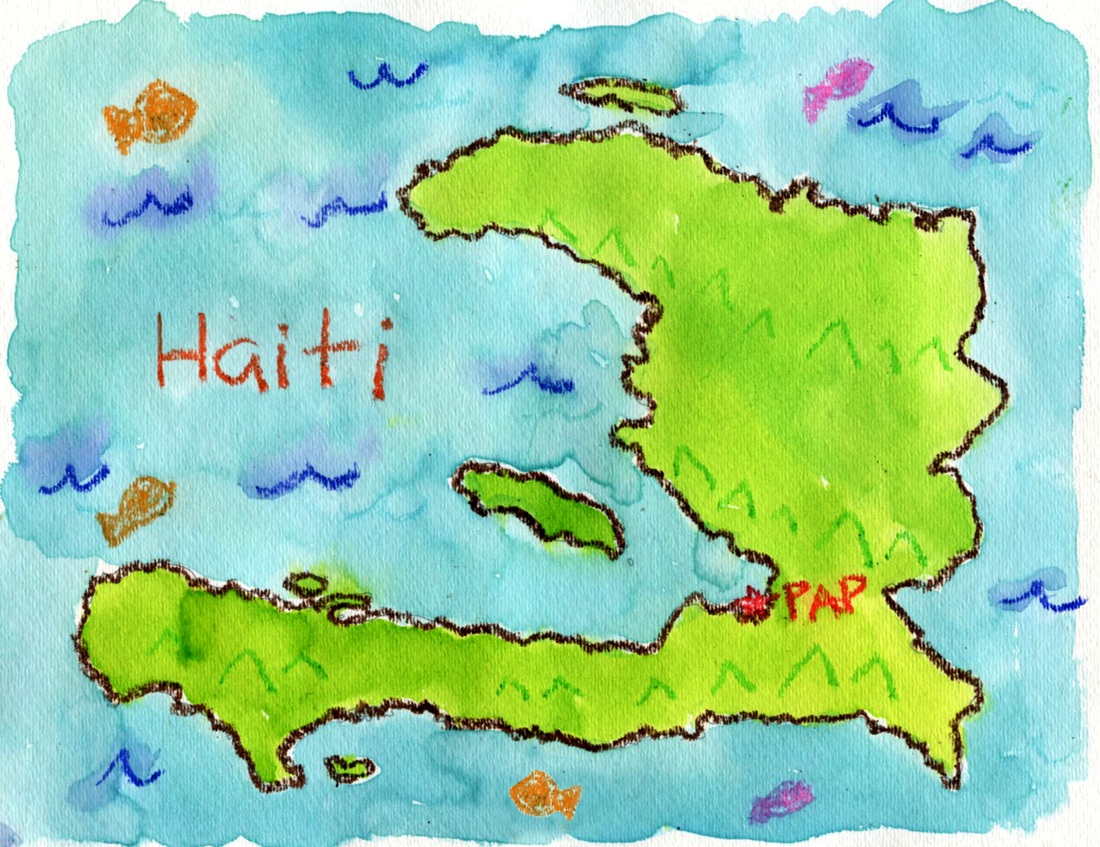 Haiti
PAP